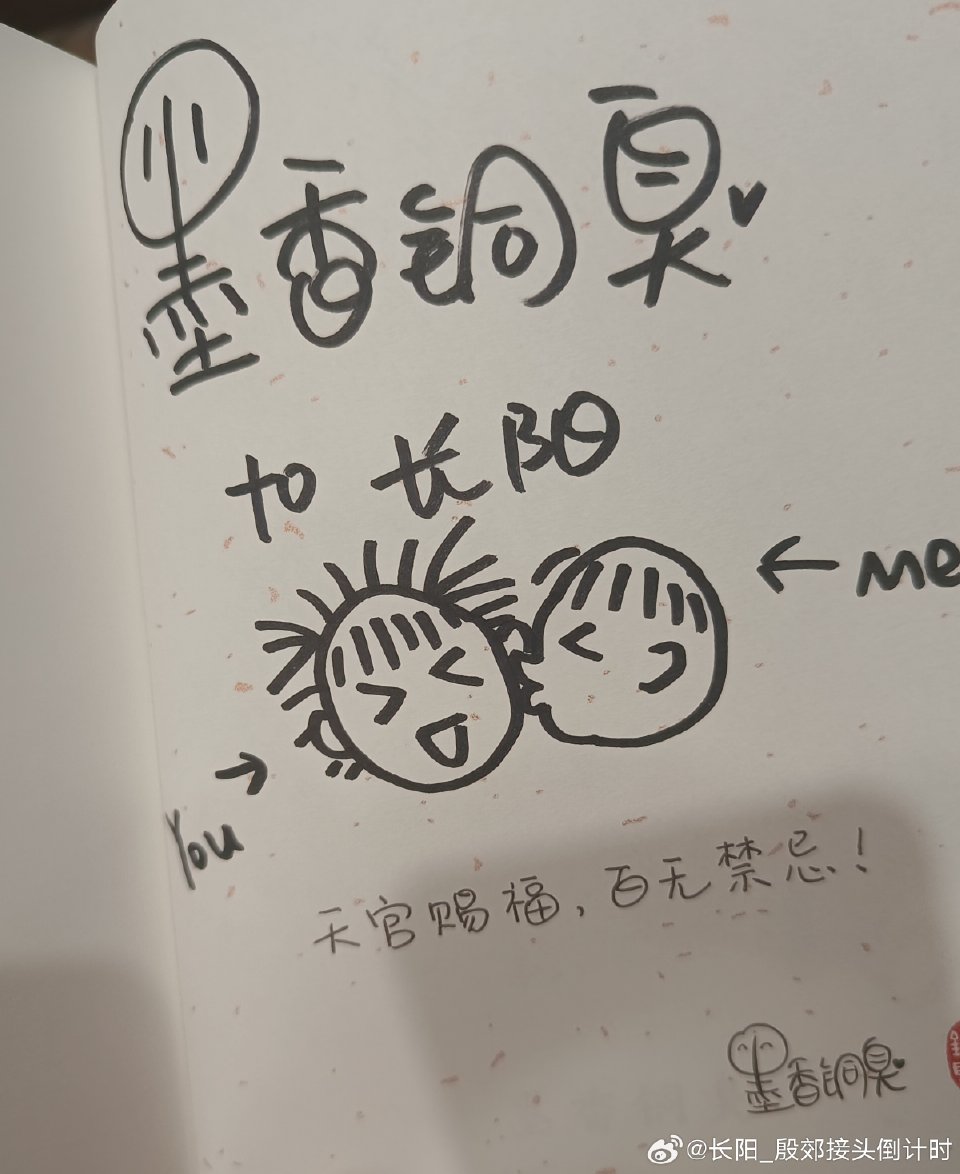 墨香铜臭
to 长阳
← me
You →
天官赐福,百无禁忌!
墨香铜臭
@长阳_殷郊接头倒计时